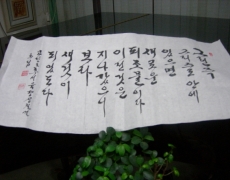 그런즉
그리스도 안에
있으면
새로운
피조물이라
이전것은
지나갔으니
보라
새것이
되었도다